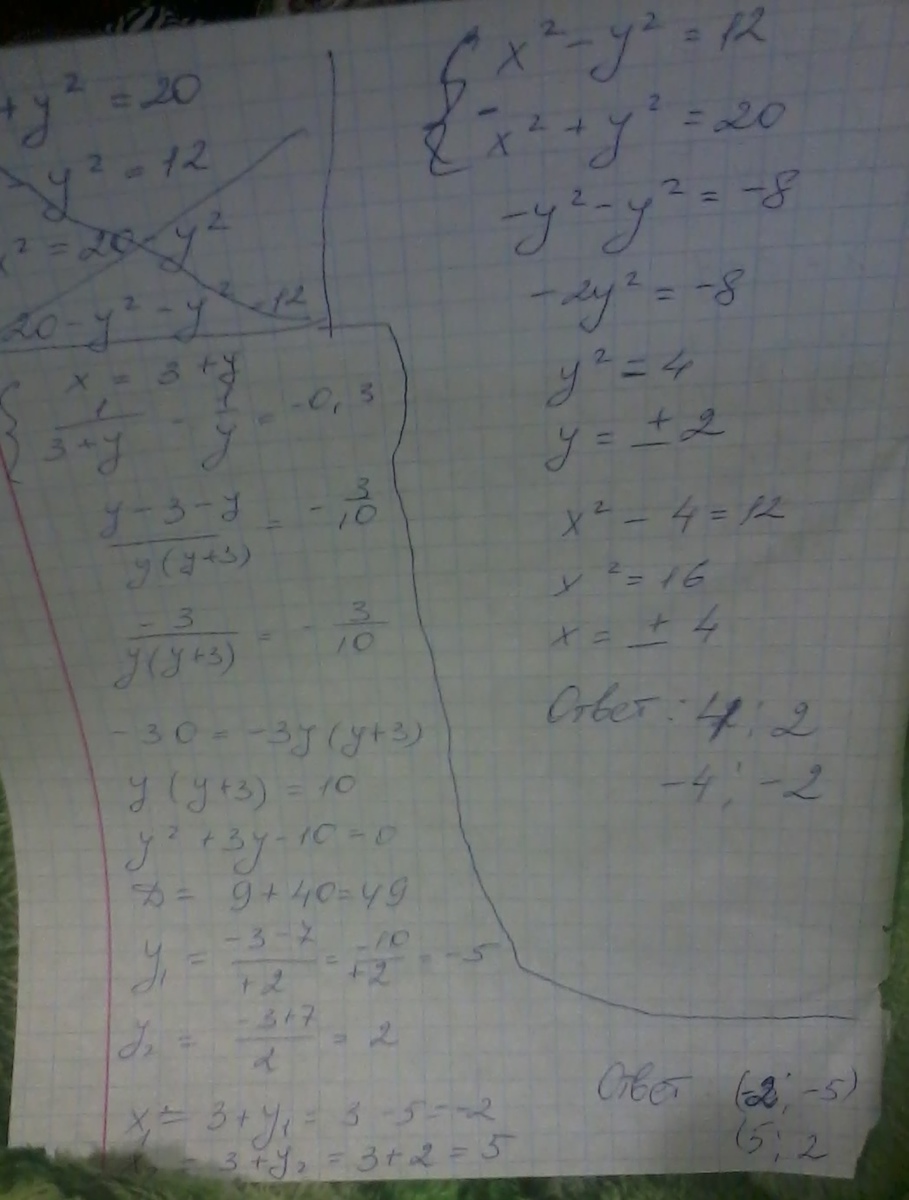 + y² = 20
- y² = 12
x² = 20 - y²
20 - y² - y² = 12
{ x = 3 + y
1/(3+y) - 1/y = -0,3
(y - 3 - y)/(y(y+3)) = - 3/10
-3/(y(y+3)) = - 3/10
-30 = -3y(y+3)
y(y+3) = 10
y² + 3y - 10 = 0
D = 9 + 40 = 49
y₁ = (-3-7)/(+2) = -10/(+2) = -5
y₂ = (-3+7)/2 = 2
x₁ = 3 + y₁ = 3 - 5 = -2
x₂ = 3 + y₂ = 3 + 2 = 5
{ x² - y² = 12
- x² + y² = 20
-y² - y² = -8
-2y² = -8
y² = 4
y = ± 2
x² - 4 = 12
x² = 16
x = ± 4
Ответ: 4; 2
-4; -2
Ответ (-2; -5)
(5; 2